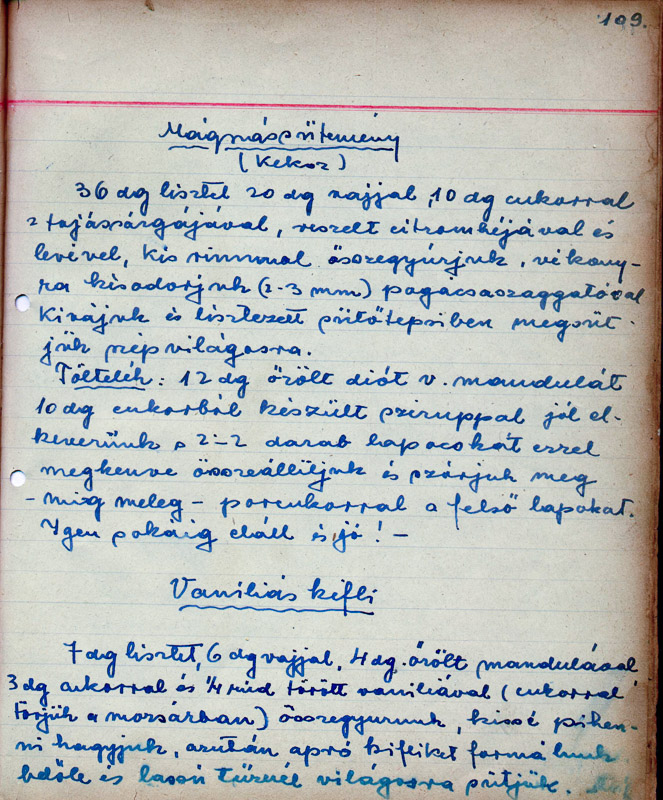 109.
Mágnássütemény
(Keksz)
36 dg lisztet 20 dg vajjal, 10 dg cukorral
2 tojássárgájával, reszelt citromhéjával és
levével, kis rummal összegyúrjuk, vékony-
ra kisodorjuk (2-3 mm) pogácsaszaggatóval
kivájuk és lisztezett sütőtepsiben megsüt-
jük szép világosra.
Töltelék: 12 dg őrölt diót v. mandulát
10 dg cukorból készült sziruppal jól el-
keverünk s 2-2 darab lapocskát ezzel
megkenve összeállítjuk és szórjuk meg
- míg meleg - porcukorral a felső lapokat.
Igen sokáig eláll és jó! -
Vaniliás kifli
7 dg lisztet, 6 dg vajjal, 4 dg. őrölt mandulával
3 dg cukorral és 1/4 rúd törött vaniliával (cukorral
törjük a mozsárban) összegyurunk, kissé pihen-
ni hagyjuk, azután apró kifliket formálunk
belőle és lassú tűznél világosra sütjük.